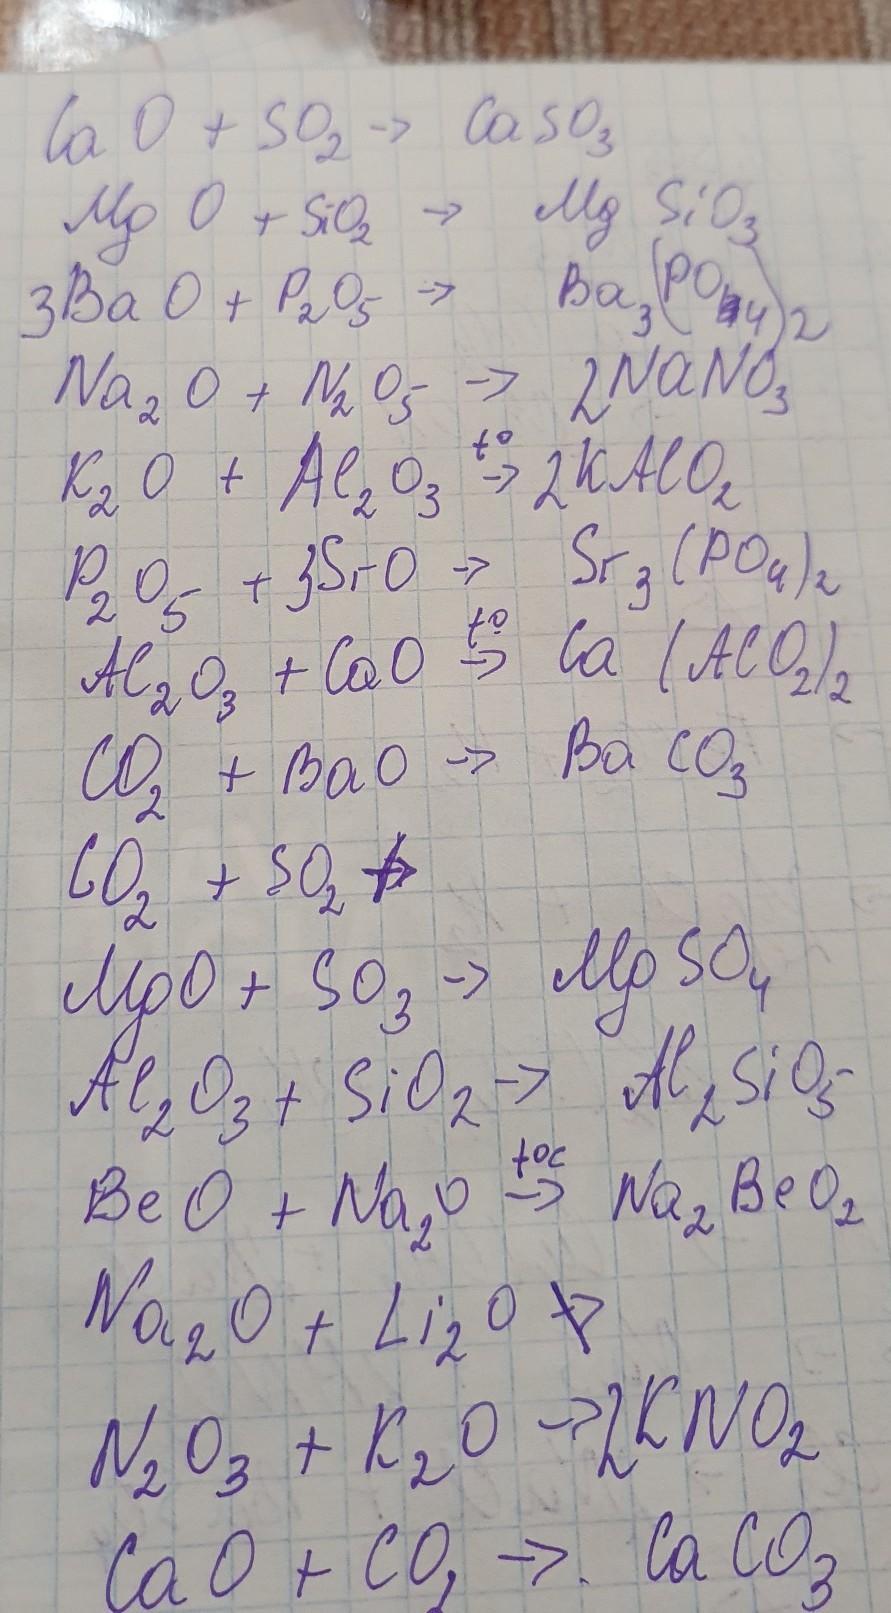 CaO + SO₂ → CaSO₃
MgO + SiO₂ → MgSiO₃
3BaO + P₂O₅ → Ba₃(PO₄)₂
Na₂O + N₂O₅ → 2NaNO₃
K₂O + Al₂O₃ t° → 2KAlO₂
P₂O₅ + 3SrO → Sr₃(PO₄)₂
Al₂O₃ + CaO t° → Ca(AlO₂)₂
CO₂ + BaO → BaCO₃
CO₂ + SO₂ ↛
MgO + SO₃ → MgSO₄
Al₂O₃ + SiO₂ → Al₂SiO₅
BeO + Na₂O t°C → Na₂BeO₂
Na₂O + Li₂O ↛
N₂O₃ + K₂O → 2KNO₂
CaO + CO₂ → CaCO₃